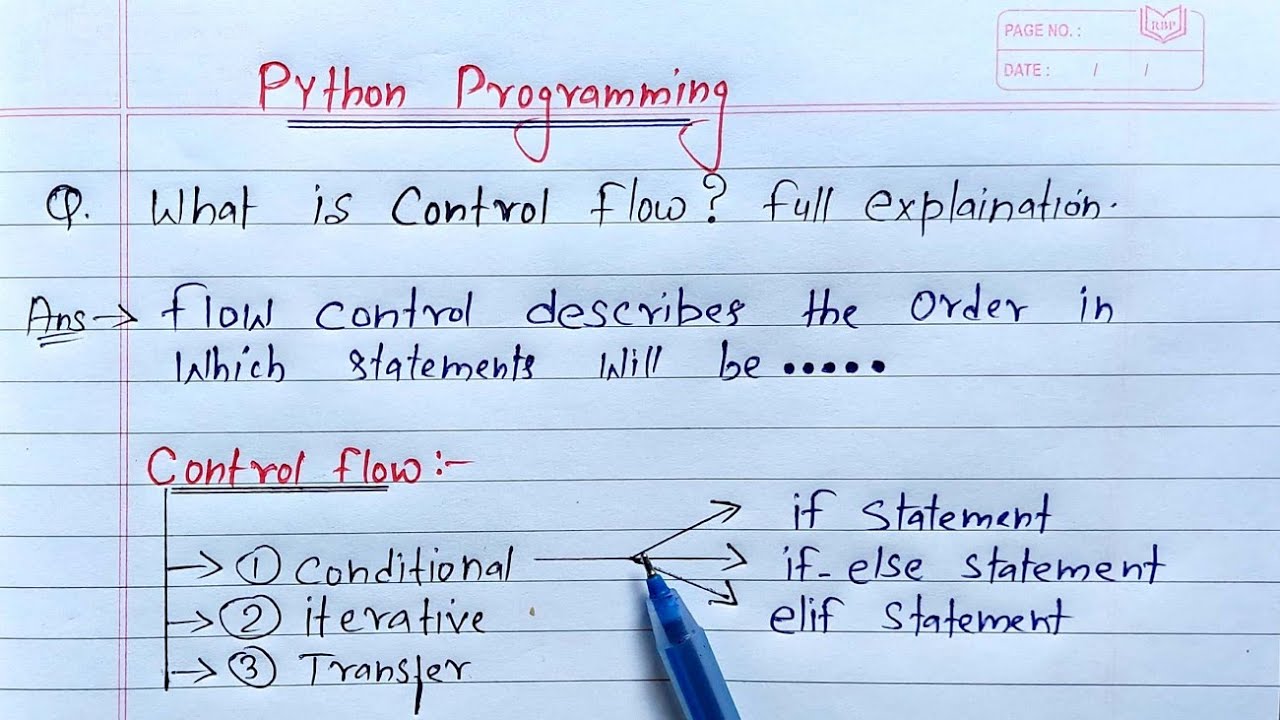 PAGE NO. :
RBP
DATE : / /
Python Programming
Q. What is Control flow? full explaination.
Ans → flow control describes the order in
which statements will be •••••
Control flow :-
→ ① Conditional → if statement
→ if-else statement
→ elif statement
→ ② iterative
→ ③ Transfer